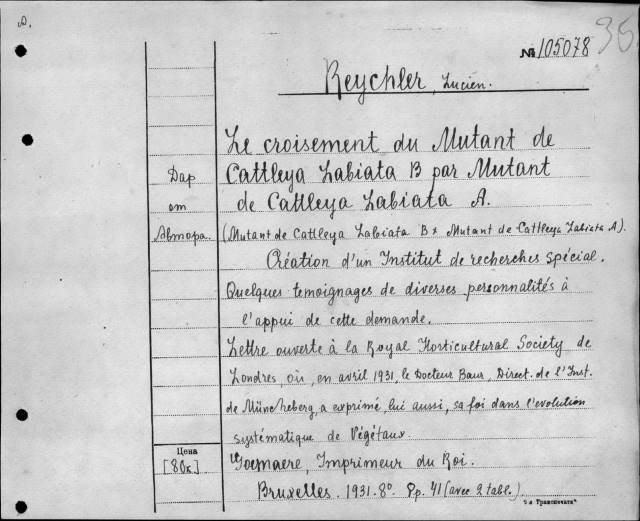 № 105078
Reychler, Lucien.
Le croisement du Mutant de
Cattleya Labiata B par Mutant
de Cattleya Labiata A.
(Mutant de Cattleya Labiata B × Mutant de Cattleya Labiata A).
Création d'un Institut de recherches spécial.
Quelques temoignages de diverses personnalités à
l'appui de cette demande.
Lettre ouverte à la Royal Horticultural Society de
Londres où, en avril 1931, le Docteur Baur, Direct. de l'Inst.
de Müncheberg, a exprimé, lui aussi, sa foi dans l'evolution
systématique de Végétaux.
Goemaere, Imprimeur du Roi.
Bruxelles. 1931. 8º. 8p. 41 (avec 2 tabl.).
Дар
от
Автора.
Цена
[80к]
"Транспечати"